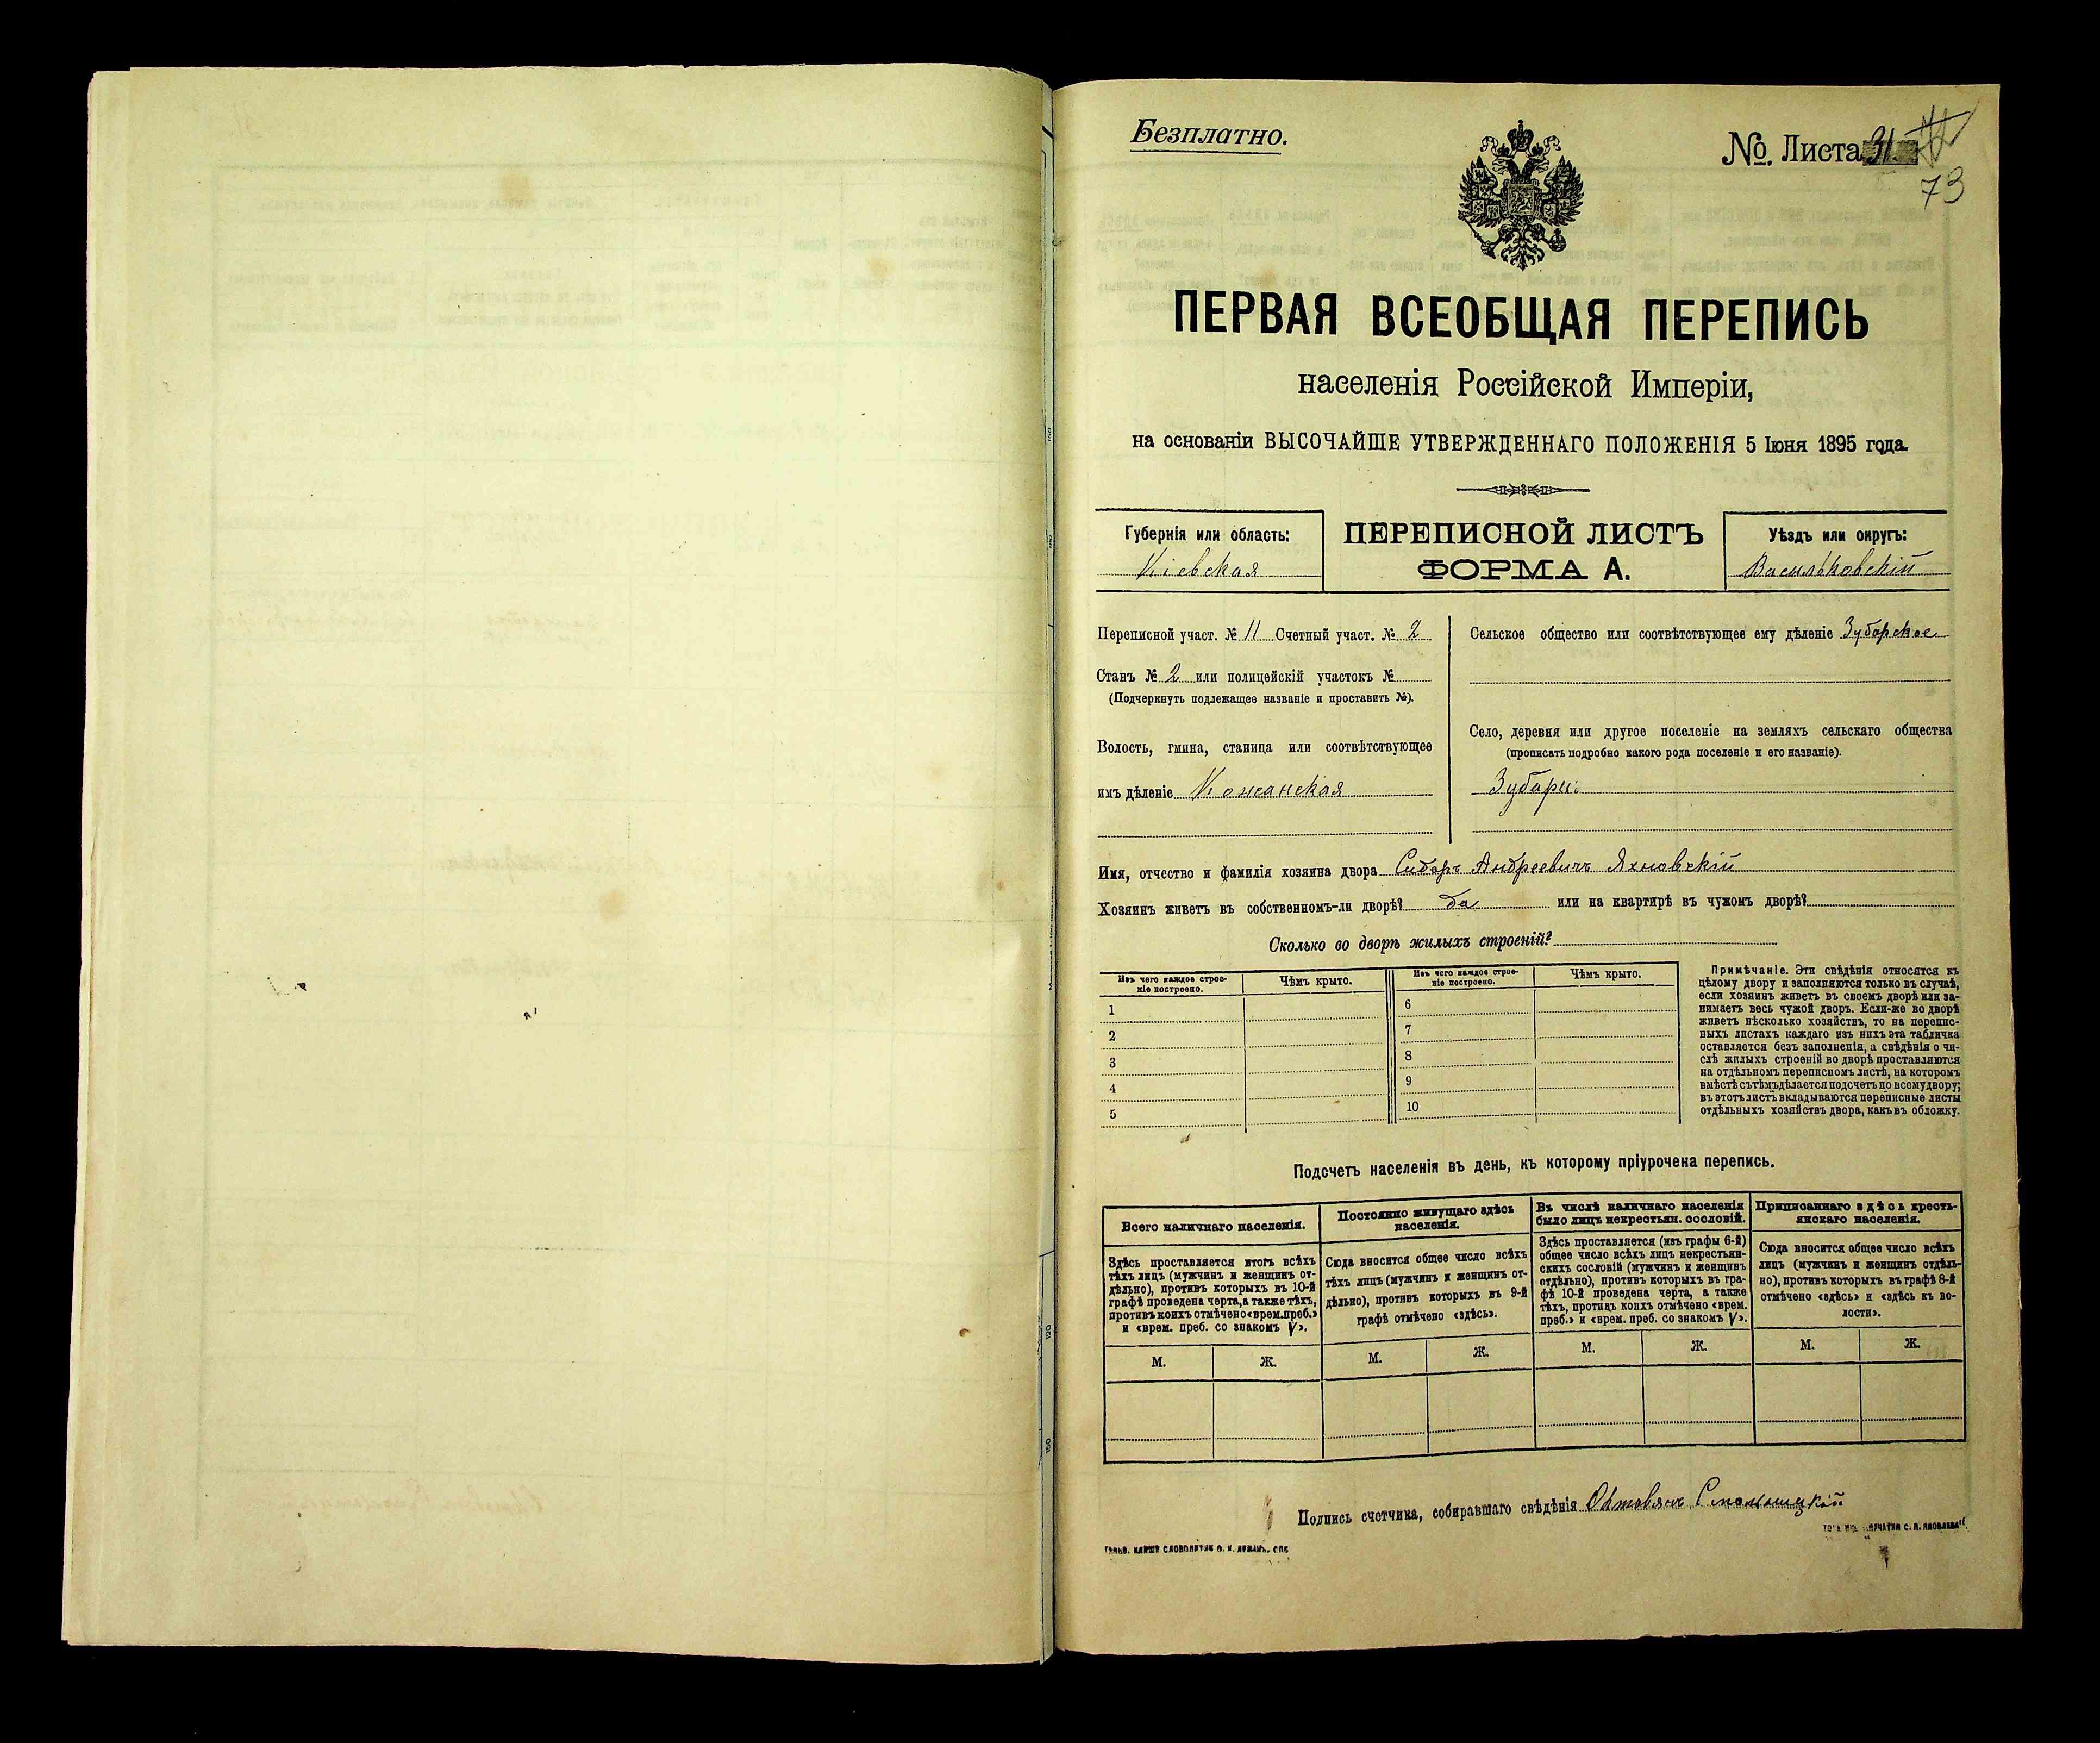 Безплатно.
№. Листа 31
73
ПЕРВАЯ ВСЕОБЩАЯ ПЕРЕПИСЬ
населенія Россійской Имперіи,
на основаніи ВЫСОЧАЙШЕ УТВЕРЖДЕННАГО ПОЛОЖЕНІЯ 5 Іюня 1895 года.
Губернія или область:
Кіевская
ПЕРЕПИСНОЙ ЛИСТЪ
ФОРМА А.
Уѣздъ или округъ:
Васильковскій
Переписной участ. № 11 Счетный участ. № 2
Станъ № 2 или полицейскій участокъ №
(Подчеркнуть подлежащее названіе и проставить №).
Волость, гмина, станица или соотвѣтствующее
имъ дѣленіе Кожанская
Сельское общество или соотвѣтствующее ему дѣленіе Зубарское
Село, деревня или другое поселеніе на земляхъ сельскаго общества
(прописать подробно какого рода поселеніе и его названіе).
Зубари
Имя, отчество и фамилія хозяина двора Сидоръ Андреевичъ Яхновскій
Хозяинъ живетъ въ собственномъ-ли дворѣ? да или на квартирѣ въ чужомъ дворѣ?
Сколько во дворѣ жилыхъ строеній?
Изъ чего каждое строе-
ніе построено.
Чѣмъ крыто.
1
2
3
4
5
Изъ чего каждое строе-
ніе построено.
Чѣмъ крыто.
6
7
8
9
10
Примѣчаніе. Эти свѣдѣнія относятся къ
цѣлому двору и заполняются только въ случаѣ,
если хозяинъ живетъ въ своемъ дворѣ или за-
нимаетъ весь чужой дворъ. Если-же во дворѣ
живетъ нѣсколько хозяйствъ, то на перепис-
ныхъ листахъ каждаго изъ нихъ эта табличка
оставляется безъ заполненія, а свѣдѣнія о чи-
слѣ жилыхъ строеній во дворѣ проставляются
на отдѣльномъ переписномъ листѣ, на которомъ
вмѣстѣ съ тѣмъ дѣлается подсчетъ по всему двору;
въ этотъ листъ вкладываются переписные листы
отдѣльныхъ хозяйствъ двора, какъ въ обложку.
Подсчетъ населенія въ день, къ которому пріурочена перепись.
Всего наличнаго населенія.
Здѣсь проставляется итогъ всѣхъ
тѣхъ лицъ (мужчинъ и женщинъ от-
дѣльно), противъ которыхъ въ 10-й
графѣ проведена черта, а также тѣхъ,
противъ коихъ отмѣчено «врем. преб.»
и «врем. преб. со знакомъ V».
М. Ж.
Постоянно живущаго здѣсь
населенія.
Сюда вносится общее число всѣхъ
тѣхъ лицъ (мужчинъ и женщинъ от-
дѣльно), противъ которыхъ въ 9-й
графѣ отмѣчено «здѣсь».
М. Ж.
Въ числѣ наличнаго населенія
было лицъ некрестьян. сословій.
Здѣсь проставляется (изъ графы 6-й)
общее число всѣхъ лицъ некрестьян-
скихъ сословій (мужчинъ и женщинъ
отдѣльно), противъ которыхъ въ гра-
фѣ 10-й проведена черта, а также
тѣхъ, противъ коихъ отмѣчено «врем.
преб.» и «врем. преб. со знакомъ V».
М. Ж.
Приписаннаго здѣсь кресть-
янскаго населенія.
Сюда вносится общее число всѣхъ
лицъ (мужчинъ и женщинъ отдѣль-
но), противъ которыхъ въ графѣ 8-й
отмѣчено «здѣсь» и «здѣсь въ во-
лости».
М. Ж.
Подпись счетчика, собиравшаго свѣдѣнія